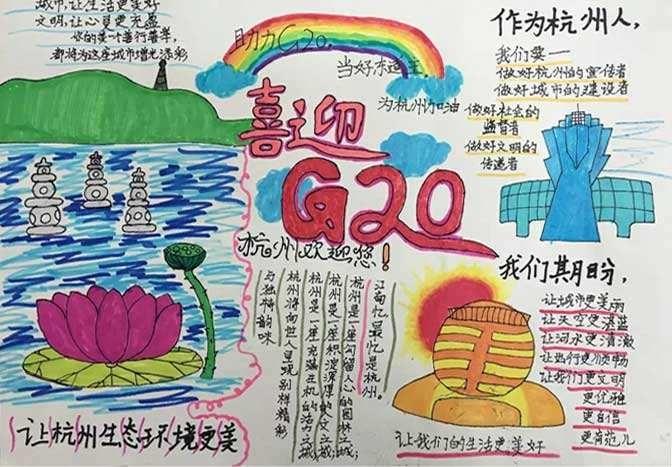 城市,让生活更美好
文明,让心灵更充盈
你的善言善行善举,
都将为这座城市增光添彩
助力G20,
当好东道主,
为杭州加油
喜迎
G20
杭州欢迎您!
作为杭州人,
我们要一
做好杭州的宣传者
做好城市的建设者
做好社会的
监督者
做好文明的
传道者
江南忆,最忆是杭州。
杭州是一座勾留人心的园林之城;
杭州是一座积淀深厚的人文之城;
杭州是一座充满生机的活力之城;
杭州将向世人呈现别样精彩
与独特韵味
我们期盼,
让城市更美丽
让天空更湛蓝
让河水更清澈
让出行更顺畅
让我们更文明
更优雅
更自信
更有范儿
让我们的生活更美好
让杭州生态环境更美